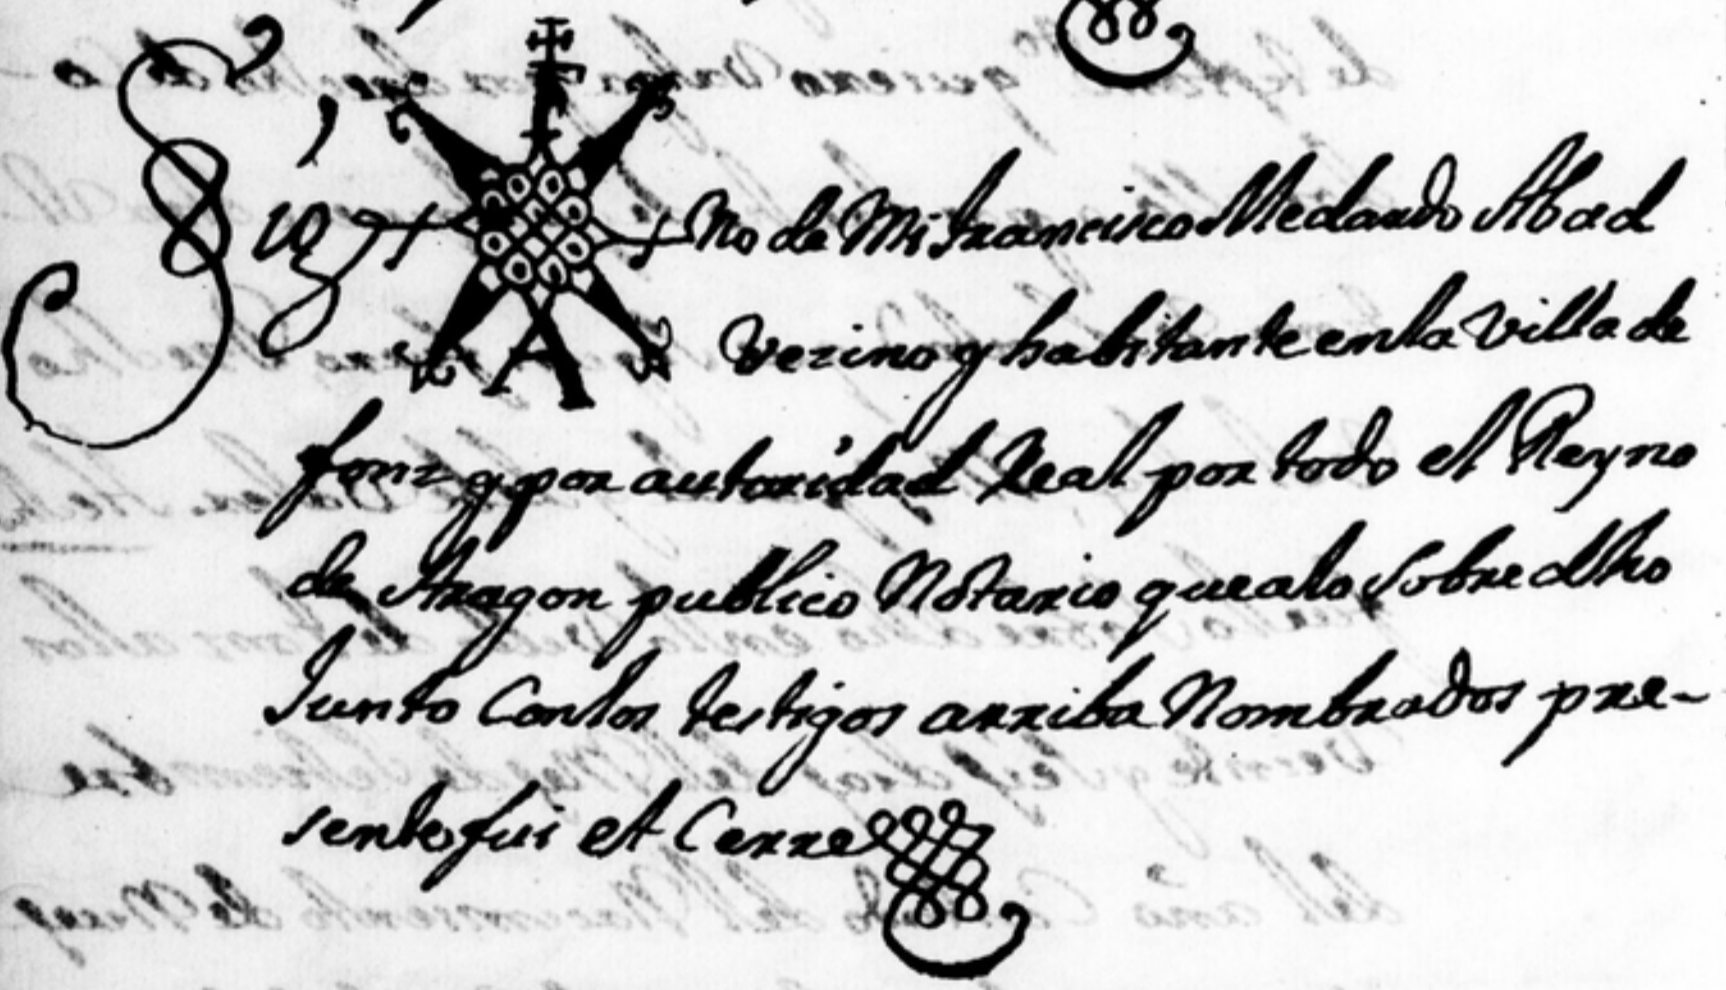 Sig no de Mi Francisco Medardo Abad
Vezino y habitante en la Villa de
fonz y por autoridad Real por todo el Reyno
de Aragon publico Notario que a lo sobre dho
Junto con los testigos arriba Nombrados pre-
sente fui et Cerre